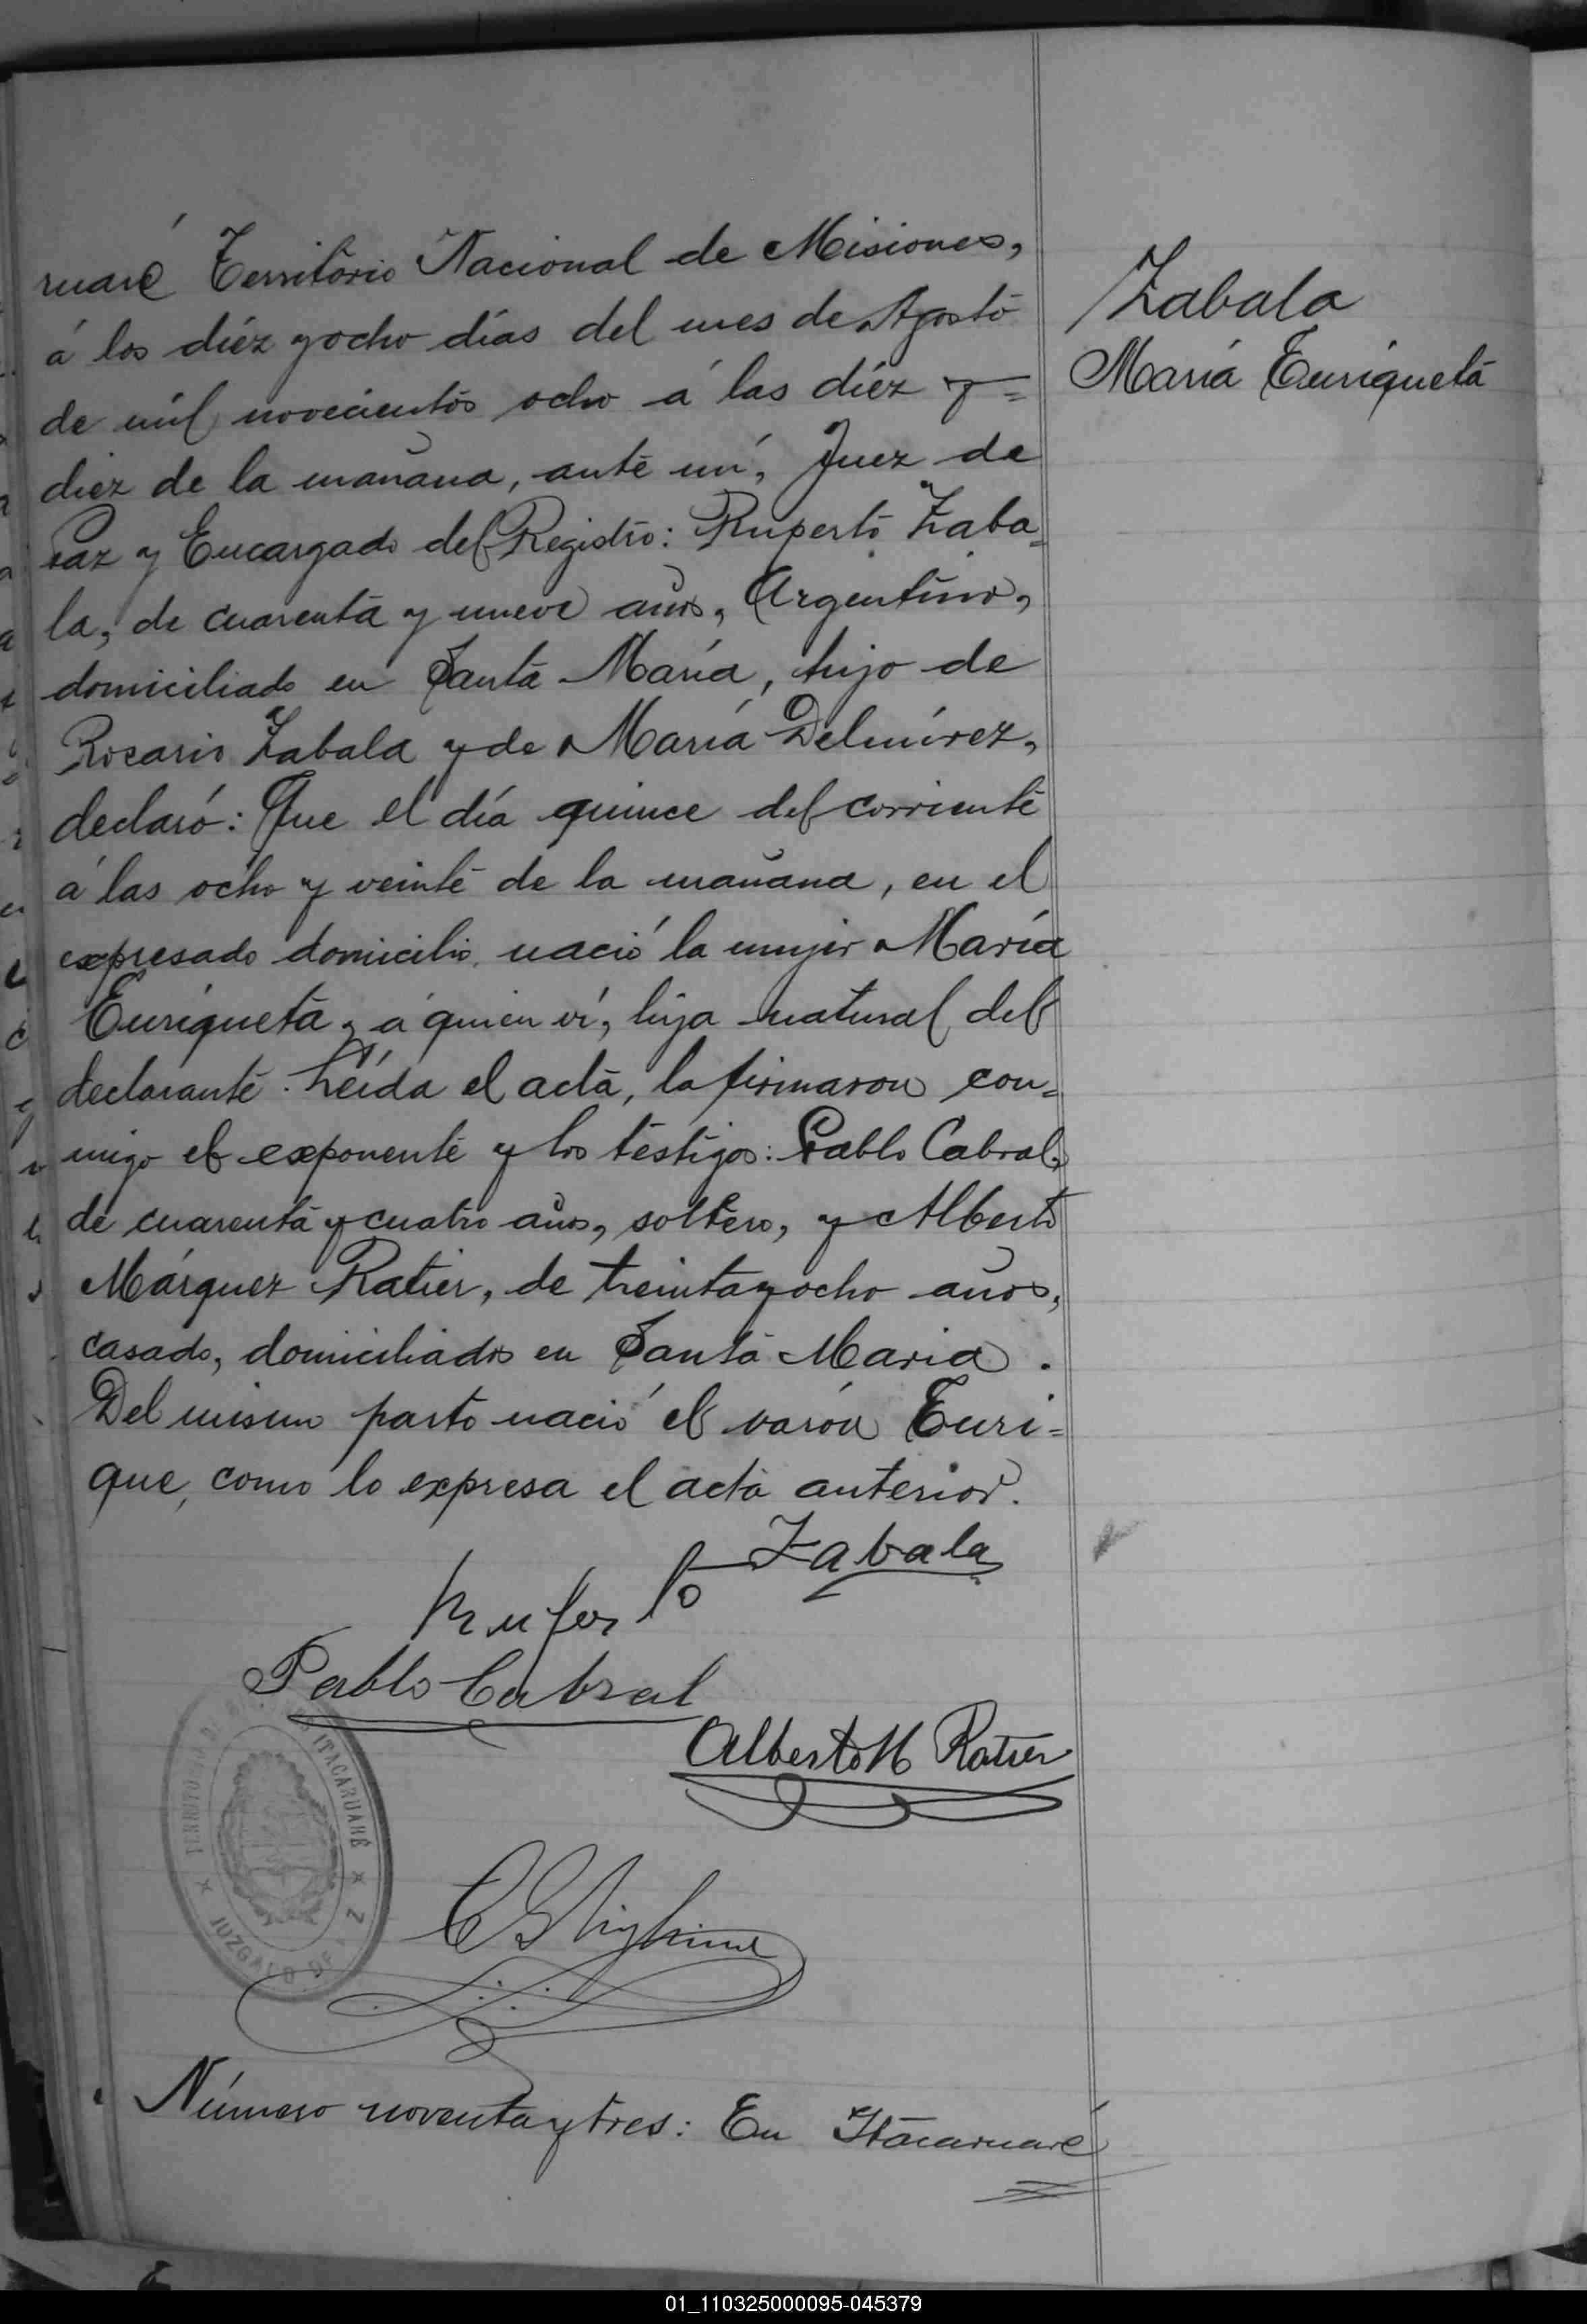 ruaré Territorio Nacional de Misiones,
á los diéz y ocho días del mes de Agosto
de mil novecientos ocho á las diéz y=
diez de la mañana, ante mí, Juez de
Paz y Encargado del Registro: Ruperto Zaba=
la, de cuarenta y nueve años, Argentino,
domiciliado en Santa María, hijo de
Rosario Zabala y de María Delmírez,
declaró: Que el día quince del corriente
á las ocho y veinte de la mañana, en el
expresado domicilio nació la mujer María
Enriqueta, á quien ví, hija natural del
declarante. Leída el acta, la firmaron con=
migo el exponente y los testigos: Pablo Cabral,
de cuarenta y cuatro años, soltero, y Alberto
Márquez Ratier, de treinta y ocho años,
casado, domiciliados en Santa Maria.
Del mismo parto nació el varón Enri=
que, como lo expresa el acta anterior.
Ruperto Zabala
Pablo Cabral
Alberto M Ratier
TERRITORIO DE ITACARUARÉ
JUZGADO DE Z
Número noventa y tres: En Itacaruaré
Zabala
María Enriqueta
01_110325000095-045379